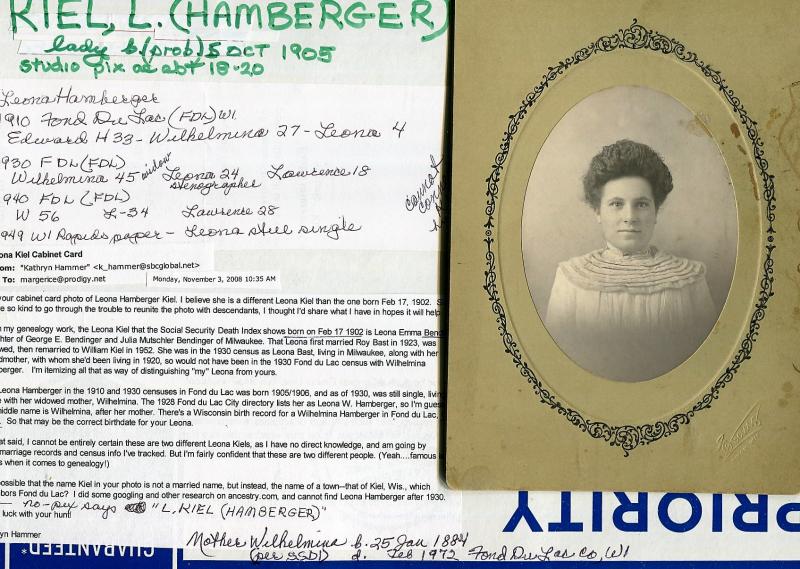 KIEL, L. (HAMBERGER)
lady b. (prob) 5 OCT 1905
studio pix ac abt 18-20
Leona Hamberger
1910 Fond Du Lac (FDL) WI
Edward H 33 - Wilhelmina 27 - Leona 4
930 FDL (FDL)
Wilhelmina 45 widow Leona 24 Lawrence 18
stenographer
940 FDL (FDL)
W 56 L-34 Lawrence 28
949 WI Rapids paper - Leona still single
cannot
ona Kiel Cabinet Card
om: "Kathryn Hammer" <k_hammer@sbcglobal.net>
To: margerice@prodigy.net Monday, November 3, 2008 10:35 AM
your cabinet card photo of Leona Hamberger Kiel. I believe she is a different Leona Kiel than the one born Feb 17, 1902. S
re so kind to go through the trouble to reunite the photo with descendants, I thought I'd share what I have in hopes it will help
n my genealogy work, the Leona Kiel that the Social Security Death Index shows born on Feb 17 1902 is Leona Emma Bend
hter of George E. Bendinger and Julia Mutschler Bendinger of Milwaukee. That Leona first married Roy Bast in 1923, was
wed, then remarried to William Kiel in 1952. She was in the 1930 census as Leona Bast, living in Milwaukee, along with her
dmother, with whom she'd been living in 1920, so would not have been in the 1930 Fond du Lac census with Wilhelmina
berger. I'm itemizing all that as way of distinguishing "my" Leona from yours.
Leona Hamberger in the 1910 and 1930 censuses in Fond du Lac was born 1905/1906, and as of 1930, was still single, livin
e with her widowed mother, Wilhelmina. The 1928 Fond du Lac City directory lists her as Leona W. Hamberger, so I'm gues
middle name is Wilhelmina, after her mother. There's a Wisconsin birth record for a Wilhelmina Hamberger in Fond du Lac,
So that may be the correct birthdate for your Leona.
at said, I cannot be entirely certain these are two different Leona Kiels, as I have no direct knowledge, and am going by
marriage records and census info I've tracked. But I'm fairly confident that these are two different people. (Yeah....famous l
s when it comes to genealogy!)
possible that the name Kiel in your photo is not a married name, but instead, the name of a town--that of Kiel, Wis., which
bors Fond du Lac? I did some googling and other research on ancestry.com, and cannot find Leona Hamberger after 1930.
no-pix says "L. KIEL (HAMBERGER)"
luck with your hunt!
yn Hammer
Mother Wilhelmina b. 25 Jan 1884
(per SSDI) d. Feb 1972 Fond Du Lac Co, WI
PRIORITY
GUARANTEED*